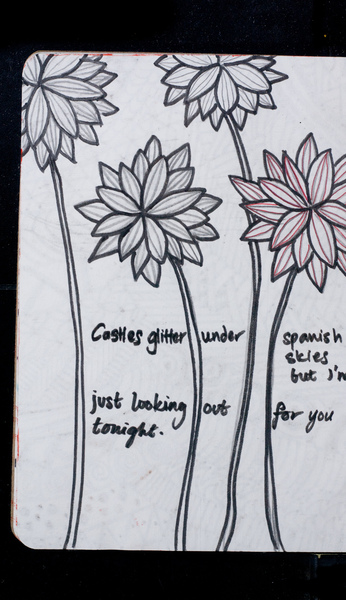 Castles glitter under spanish
skies
but I'm
just looking out for you
tonight.